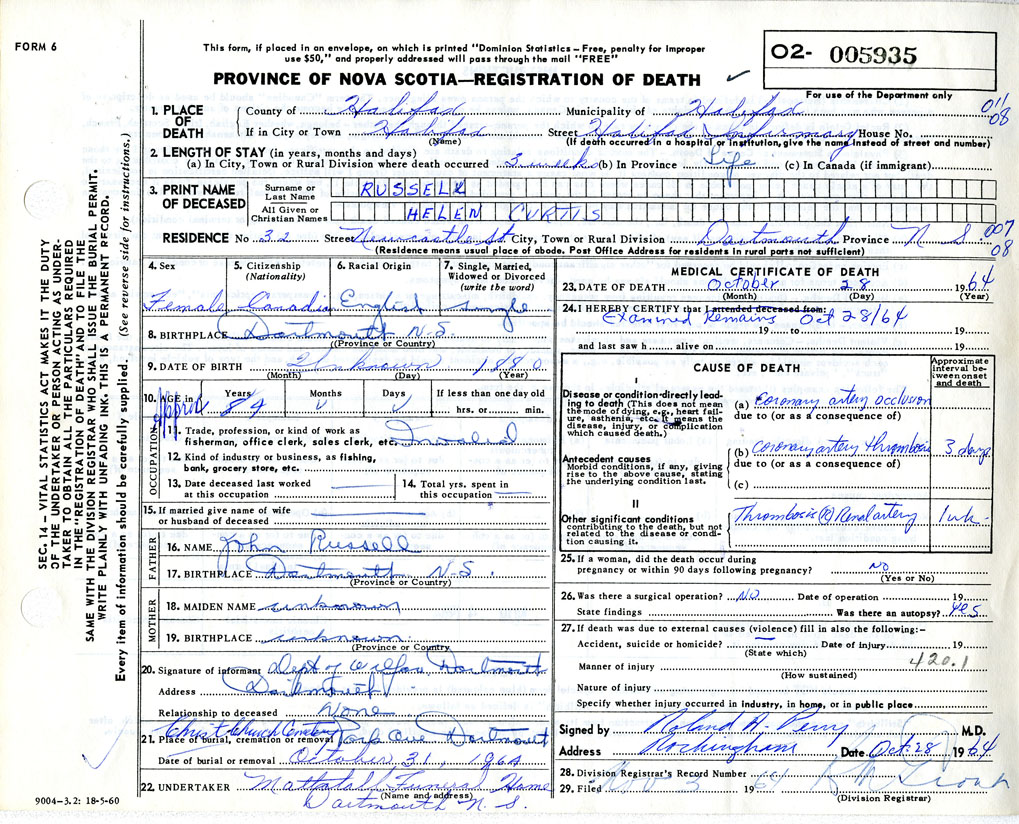 FORM 6
This form, if placed in an envelope, on which is printed "Dominion Statistics – Free, penalty for improper
use $50," and properly addressed will pass through the mail "FREE"
PROVINCE OF NOVA SCOTIA—REGISTRATION OF DEATH
O2- 005935
For use of the Department only
01/08
SEC. 14 – VITAL STATISTICS ACT MAKES IT THE DUTY
OF THE UNDERTAKER OR PERSON ACTING AS UNDER-
TAKER TO OBTAIN ALL THE PARTICULARS REQUIRED
IN THE "REGISTRATION OF DEATH" AND TO FILE THE
SAME WITH THE DIVISION REGISTRAR WHO SHALL ISSUE THE BURIAL PERMIT.
WRITE PLAINLY WITH UNFADING INK. THIS IS A PERMANENT RECORD.
Every item of information should be carefully supplied. (See reverse side for instructions.)
1. PLACE OF DEATH
County of Halifax Municipality of Halifax
If in City or Town Halifax Street Halifax Infirmary House No.
(Name) (If death occurred in a hospital or institution, give the name instead of street and number)
2. LENGTH OF STAY (in years, months and days)
(a) In City, Town or Rural Division where death occurred 3 weeks (b) In Province Life (c) In Canada (if immigrant)
3. PRINT NAME OF DECEASED
Surname or Last Name RUSSELL
All Given or Christian Names HELEN CURTIS
RESIDENCE No 32 Street Newcastle St. City, Town or Rural Division Dartmouth Province N S
007
08
(Residence means usual place of abode. Post Office Address for residents in rural parts not sufficient)
4. Sex Female
5. Citizenship (Nationality) Canadian
6. Racial Origin English
7. Single, Married, Widowed or Divorced (write the word) single
8. BIRTHPLACE Dartmouth N.S.
(Province or Country)
9. DATE OF BIRTH Unknown 1880
(Month) (Day) (Year)
10. AGE in Years Months Days If less than one day old
approx 84 hrs. or min.
OCCUPATION
11. Trade, profession, or kind of work as
fisherman, office clerk, sales clerk, etc. Invalid
12. Kind of industry or business, as fishing,
bank, grocery store, etc.
13. Date deceased last worked
at this occupation
14. Total yrs. spent in
this occupation
15. If married give name of wife
or husband of deceased
FATHER
16. NAME John Russell
17. BIRTHPLACE Dartmouth N.S.
(Province or Country)
MOTHER
18. MAIDEN NAME unknown
19. BIRTHPLACE unknown
(Province or Country)
20. Signature of informant Dept of Welfare Dartmouth
Address Dartmouth
Relationship to deceased None
Christ Church Cemetery
21. Place of burial, cremation or removal Park Ave Dartmouth
Date of burial or removal October 31, 1964
22. UNDERTAKER Mattatall Funeral Home
(Name and address)
Dartmouth N.S.
9004–3.2: 18-5-60
MEDICAL CERTIFICATE OF DEATH
23. DATE OF DEATH October 28 1964
(Month) (Day) (Year)
24. I HEREBY CERTIFY that I attended deceased from:
Examined Remains Oct 28/64
19 to 19
and last saw h alive on 19
CAUSE OF DEATH
Approximate interval between onset and death
I
Disease or condition directly lead-
ing to death (This does not mean
the mode of dying, e.g., heart fail-
ure, asthenia, etc. It means the
disease, injury, or complication
which caused death.)
(a) Coronary artery occlusion
due to (or as a consequence of)
Antecedent causes
Morbid conditions, if any, giving
rise to the above cause, stating
the underlying condition last.
(b) Coronary artery thrombosis 3 days
due to (or as a consequence of)
(c)
II
Other significant conditions
contributing to the death, but not
related to the disease or condi-
tion causing it.
Thrombosis (R) Renal artery 1 wk.
25. If a woman, did the death occur during
pregnancy or within 90 days following pregnancy? NO
(Yes or No)
26. Was there a surgical operation? NO Date of operation 19
State findings Was there an autopsy? Yes
27. If death was due to external causes (violence) fill in also the following:–
Accident, suicide or homicide? Date of injury 19
(State which)
420.1
Manner of injury
(How sustained)
Nature of injury
Specify whether injury occurred in industry, in home, or in public place
Signed by Roland A. Perry M.D.
Address Rockingham Date Oct. 28 1964
28. Division Registrar's Record Number
29. Filed Nov 3 1964
(Division Registrar)